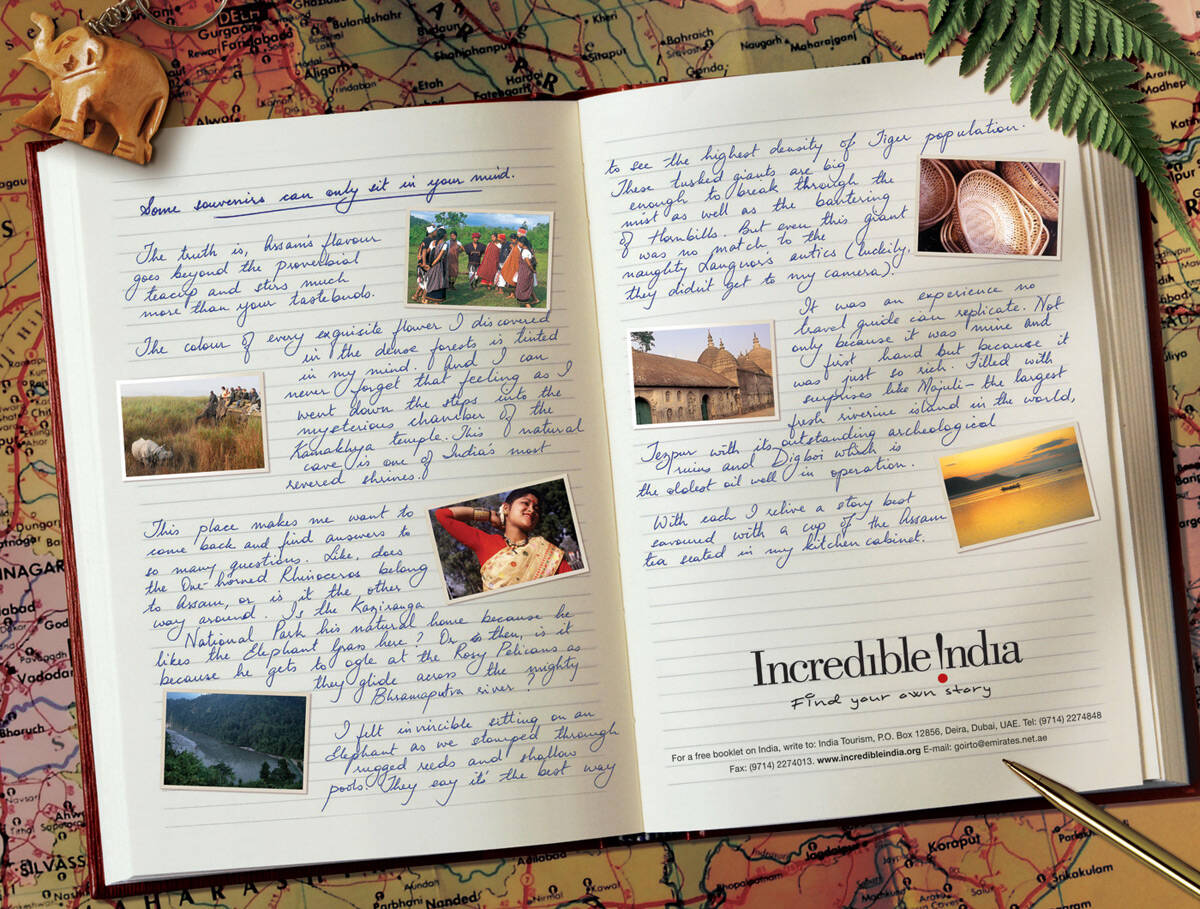 DELHI
Gurgaon
Faridabad
Rewari
Bulandshahr
Aligarh
Vrindaban
Budaun
Shahjahanpur
Etah
Hardoi
Fatehgarh
Kheri
Sitapur
Bahraich
Gonda
Naugarh
Maharajganj
Alwar
Some souvenirs can only sit in your mind.
The truth is, Assam's flavour
goes beyond the proverbial
teacup and stirs much
more than your tastebuds.
The colour of every exquisite flower I discovered
in the dense forests is tinted
in my mind. And I can
never forget that feeling as I
went down the steps into the
mysterious chamber of the
Kamakhya temple. This natural
cave is one of India's most
revered shrines.
This place makes me want to
come back and find answers to
so many questions. Like, does
the One-horned Rhinoceros belong
to Assam, or is it the other
way around. Is the Kaziranga
National Park his natural home because he
likes the Elephant Grass here? Or is then, is it
because he gets to ogle at the Rosy Pelicans as
they glide across the mighty
Bhramaputra river?
I felt invincible sitting on an
Elephant as we stomped through
rugged reeds and shallow
pools. They say it's the best way
to see the highest density of Tiger population.
These tusked giants are big
enough to break through the
mist as well as the bantering
of Hornbills. But even this giant
was no match to the
naughty Langur's antics (luckily,
they didn't get to my camera)
It was an experience no
travel guide can replicate. Not
only because it was mine and
first hand but because it
was just so rich. Filled with
surprises like Majuli – the largest
fresh riverine island in the world,
Tezpur with its outstanding archeological
ruins and Digboi which is
the oldest oil well in operation.
With each I relive a story best
savoured with a cup of the Assam
tea seated in my kitchen cabinet.
Incredible !ndia
Find your own story
For a free booklet on India, write to: India Tourism, P.O. Box 12856, Deira, Dubai, UAE. Tel: (9714) 2274848
Fax: (9714) 2274013. www.incredibleindia.org E-mail: goirto@emirates.net.ae
Vadodar
Bharuch
Navsar
SILVASS
Parbhani
Nanded
Adilabad
Nirmal
Kawal
Jagdalpur
Koraput
Bhopalpatnam
Sakakulam